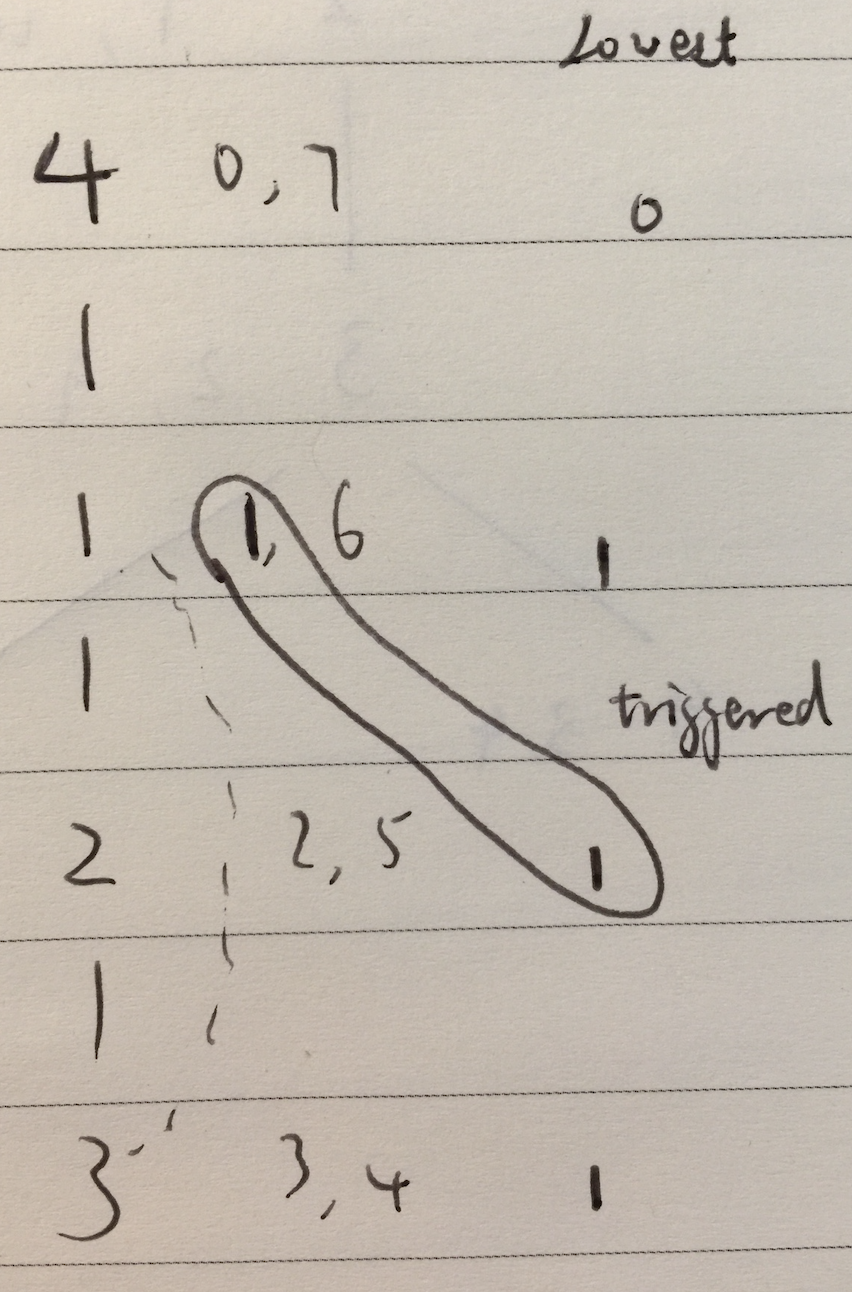 Lowest
4 0, 7 0
1
1 1, 6 1
1 triggered
2 2, 5 1
1
3 3, 4 1